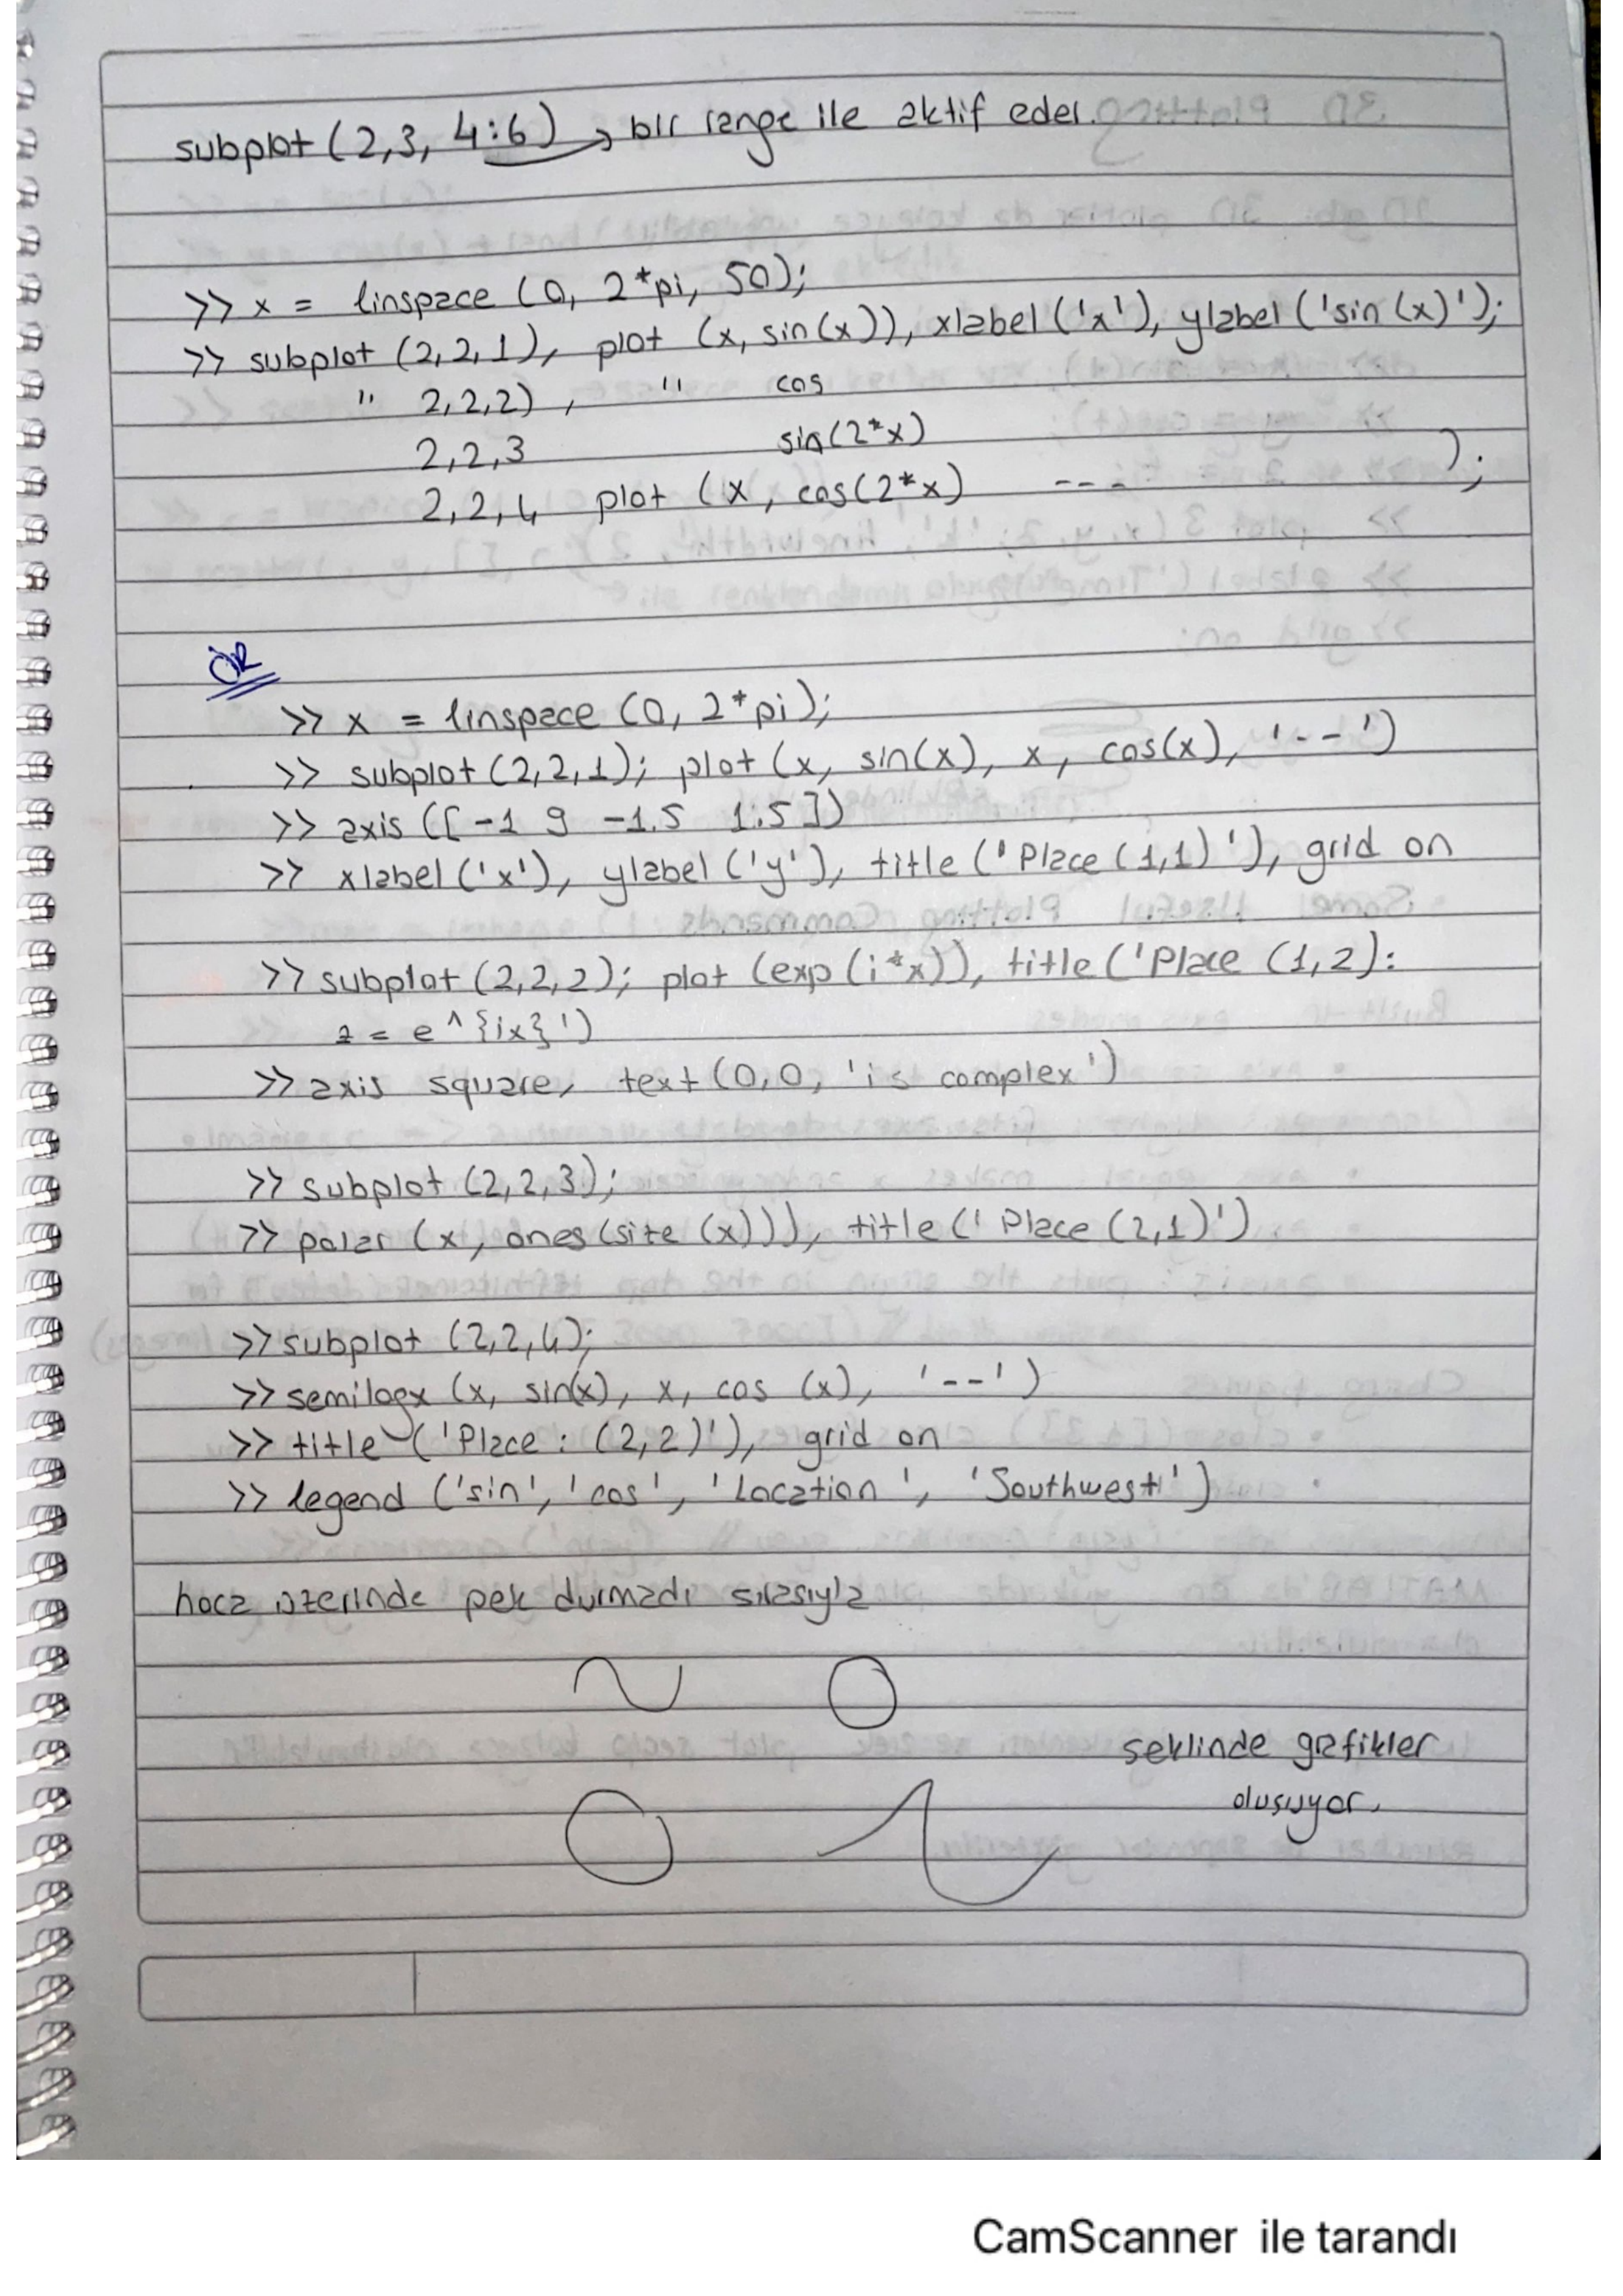 subplot (2,3, 4:6) → bir range ile aktif eder.
>> x = linspace (0, 2*pi, 50);
>> subplot (2,2,1), plot (x, sin(x)), xlabel ('x'), ylabel ('sin (x)');
" 2,2,2) , " cos
2,2,3 sin(2*x)
2,2,4 plot (x, cos(2*x) ---- );
ÖR
>> x = linspace (0, 2*pi);
>> subplot (2,2,1); plot (x, sin(x), x, cos(x), '--')
>> axis ([ -1 9 -1.5 1.5 ])
>> xlabel ('x'), ylabel ('y'), title ('Place (1,1)'), grid on
>> subplot (2,2,2); plot (exp (i*x)), title ('Place (1,2):
z = e^{ix}')
>> axis square, text (0,0, 'is complex')
>> subplot (2,2,3);
>> polar (x, ones (size (x))), title (' Place (2,1)')
>> subplot (2,2,4);
>> semilogx (x, sin(x), x, cos (x), '--')
>> title ('Place : (2,2)'), grid on
>> legend ('sin', 'cos', 'Location', 'Southwest')
hoca üzerinde pek durmadı sırasıyla
seklinde grafikler
oluşuyor.
CamScanner ile tarandı